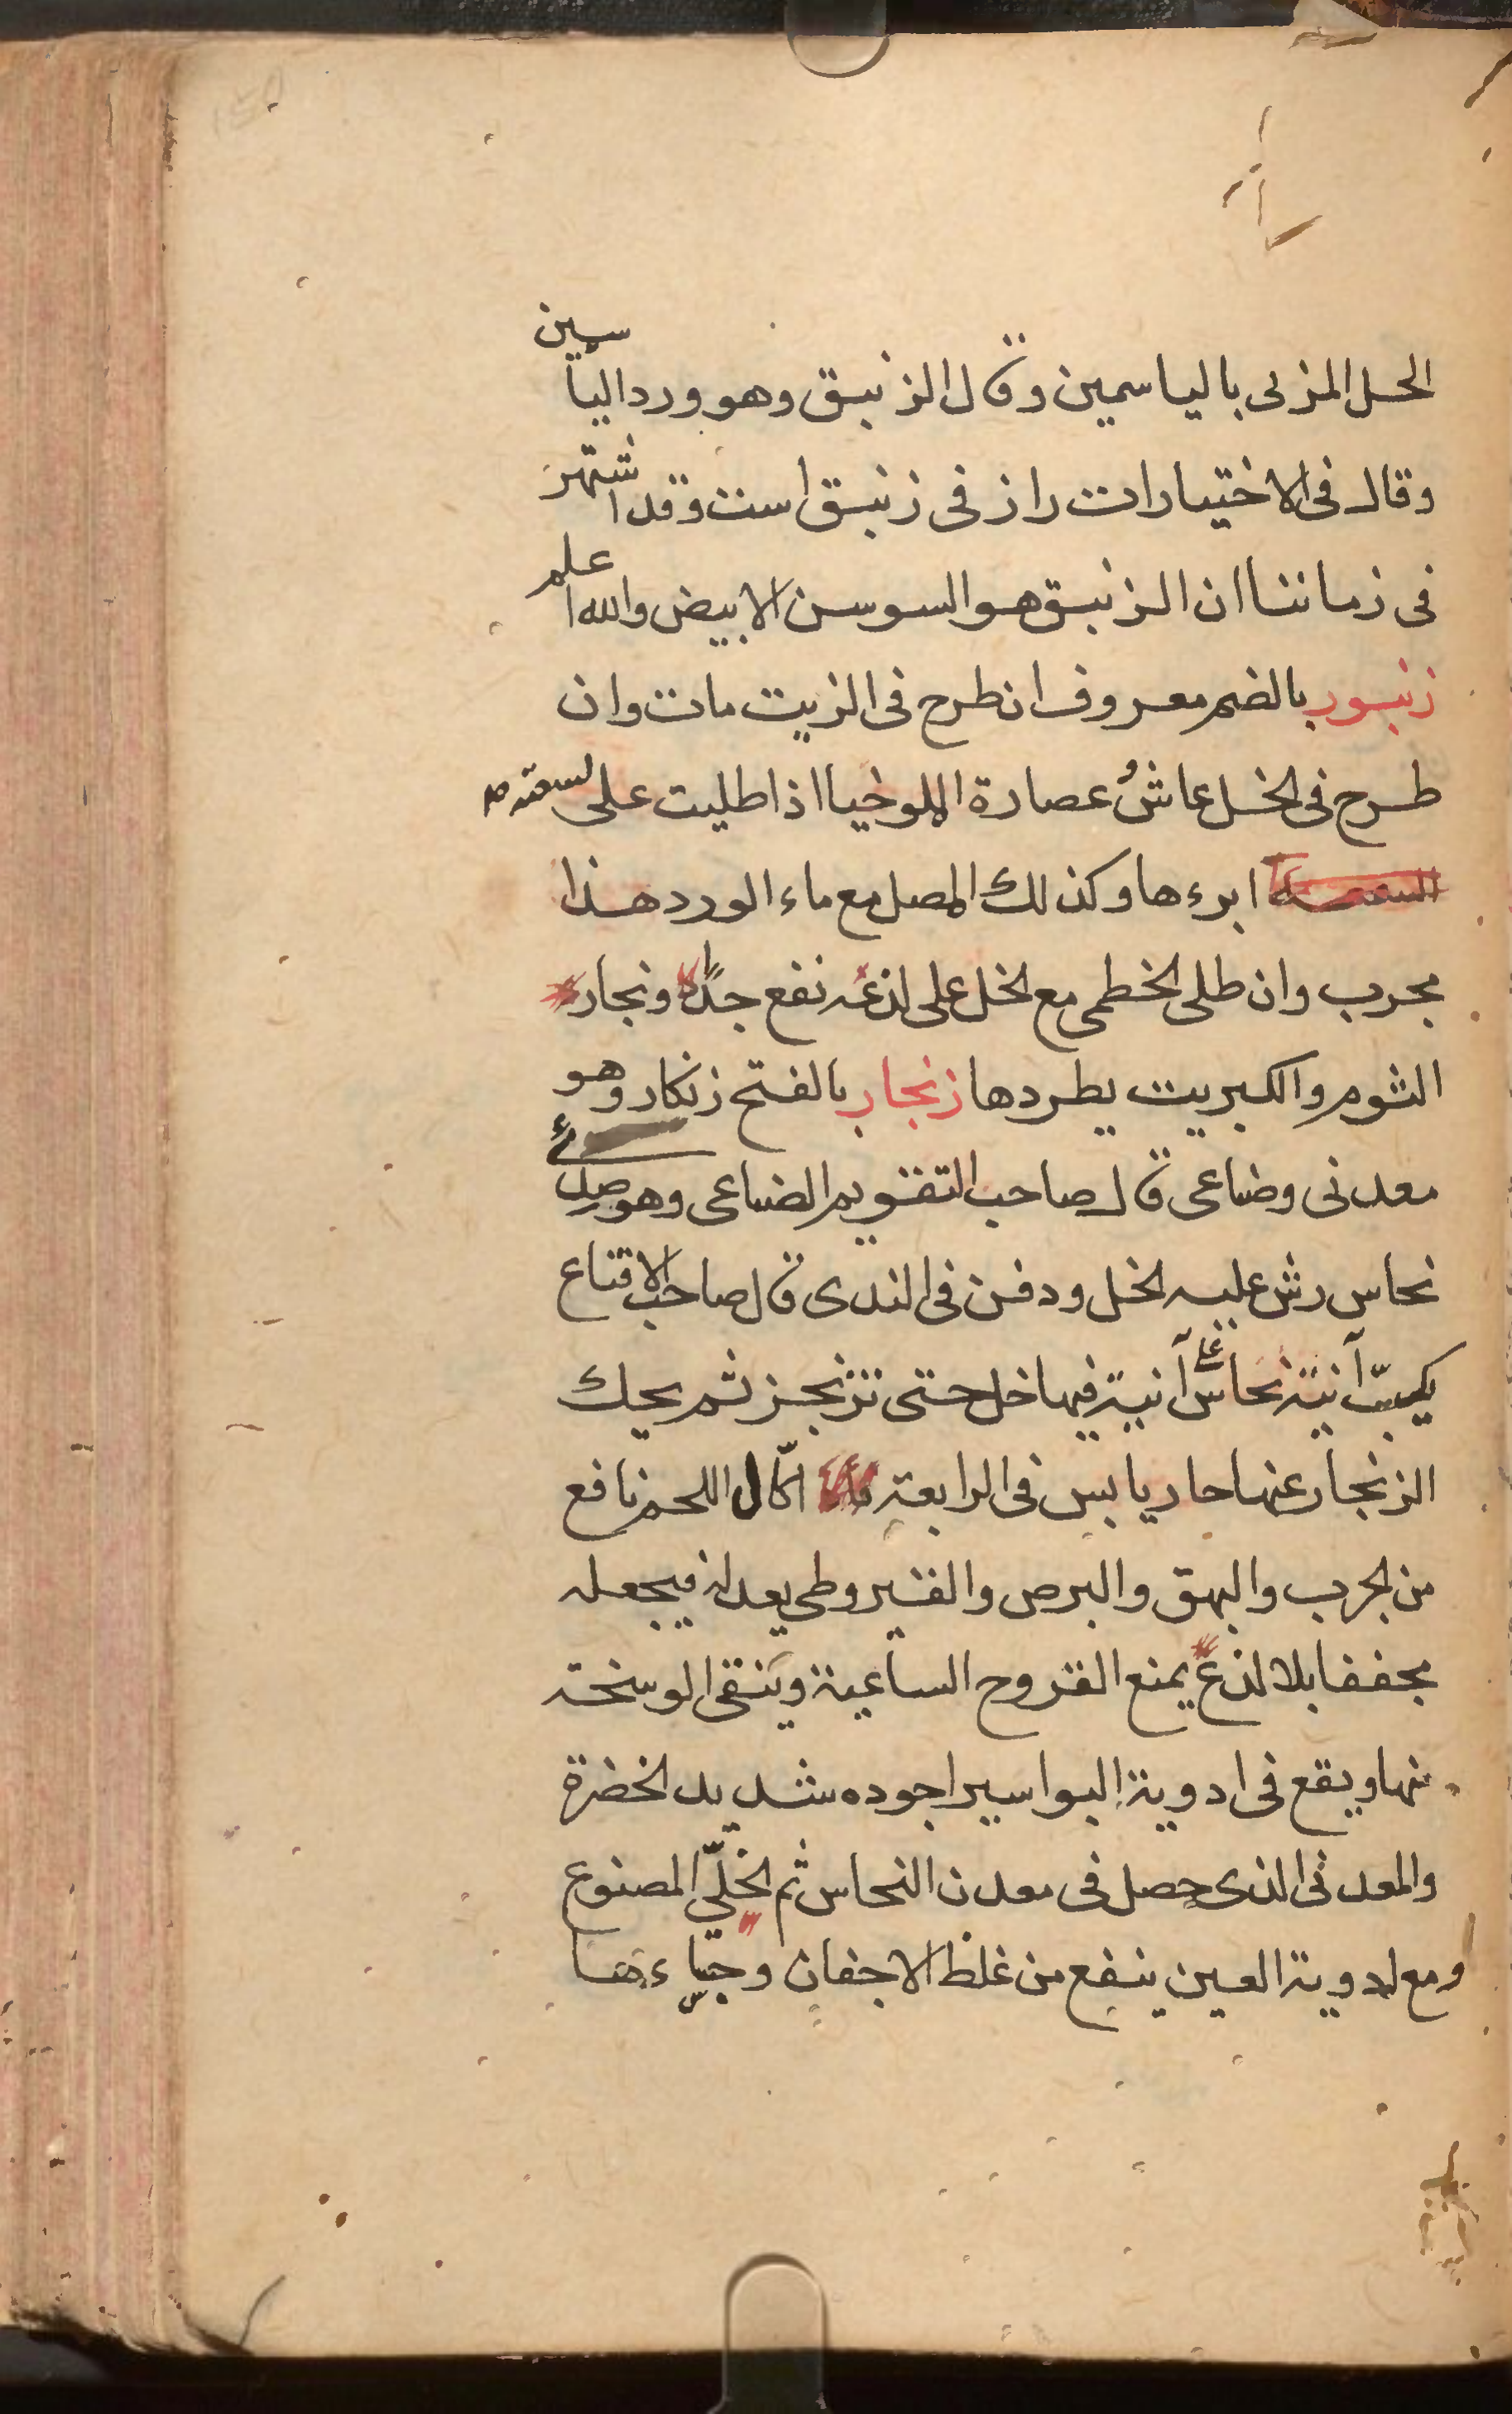 الحل المزبى بالياسمين وقال الزنبق وهو ورد الياسمين
وقال فى الاختيارات رازفى زنبق است وقد اشتهر
فى زماننا ان الزنبق هو السوسن الابيض والله اعلم
زنبور بالضم معروف ان طرح فى الزيت مات وان
طرح فى الخل عاش عصارة الملوخيا اذا طليت على لسعته
ابرءها وكذلك المصل مع ماء الورد هذا
مجرب وان طلى الخطمى مع الخل على لذعه نفع جدًا وبخار
الثوم والكبريت يطردها زنجار بالفتح زنكار وهو
معدنى وضاعى قال صاحب التقويم الضاعى وهو
نحاس رش عليه الخل ودفن فى الندى قال صاحب الاقناع
يكبّ آنية نحاس على آنية فيها خل حتى تزنجر ثم يحك
الزنجار عنها حار يابس فى الرابعة اكّال اللحم نافع
من الجرب والبهق والبرص والقيروطى يعدله فيجعله
مجففا بلا لذع يمنع القروح الساعية وينقى الوسخة
منها ويقع فى ادوية البواسير اجوده شديد الخضرة
والمعدنى الذى حصل فى معدن النحاس ثم الخلّي المصنوع
ومع ادوية العين ينفع من غلظ الاجفان وجساءها